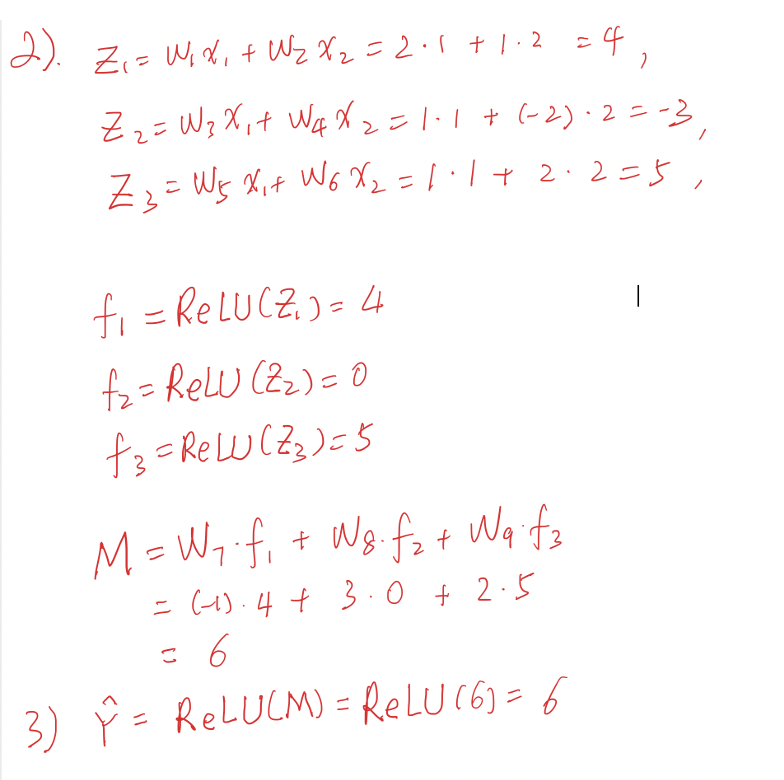 2). Z₁ = W₁X₁ + W₂X₂ = 2·1 + 1·2 = 4,
Z₂ = W₃X₁ + W₄X₂ = 1·1 + (-2)·2 = -3,
Z₃ = W₅X₁ + W₆X₂ = 1·1 + 2·2 = 5,
f₁ = ReLU(Z₁) = 4
f₂ = ReLU(Z₂) = 0
f₃ = ReLU(Z₃) = 5
M = W₇·f₁ + W₈·f₂ + W₉·f₃
= (-1)·4 + 3·0 + 2·5
= 6
3) Ŷ = ReLU(M) = ReLU(6) = 6